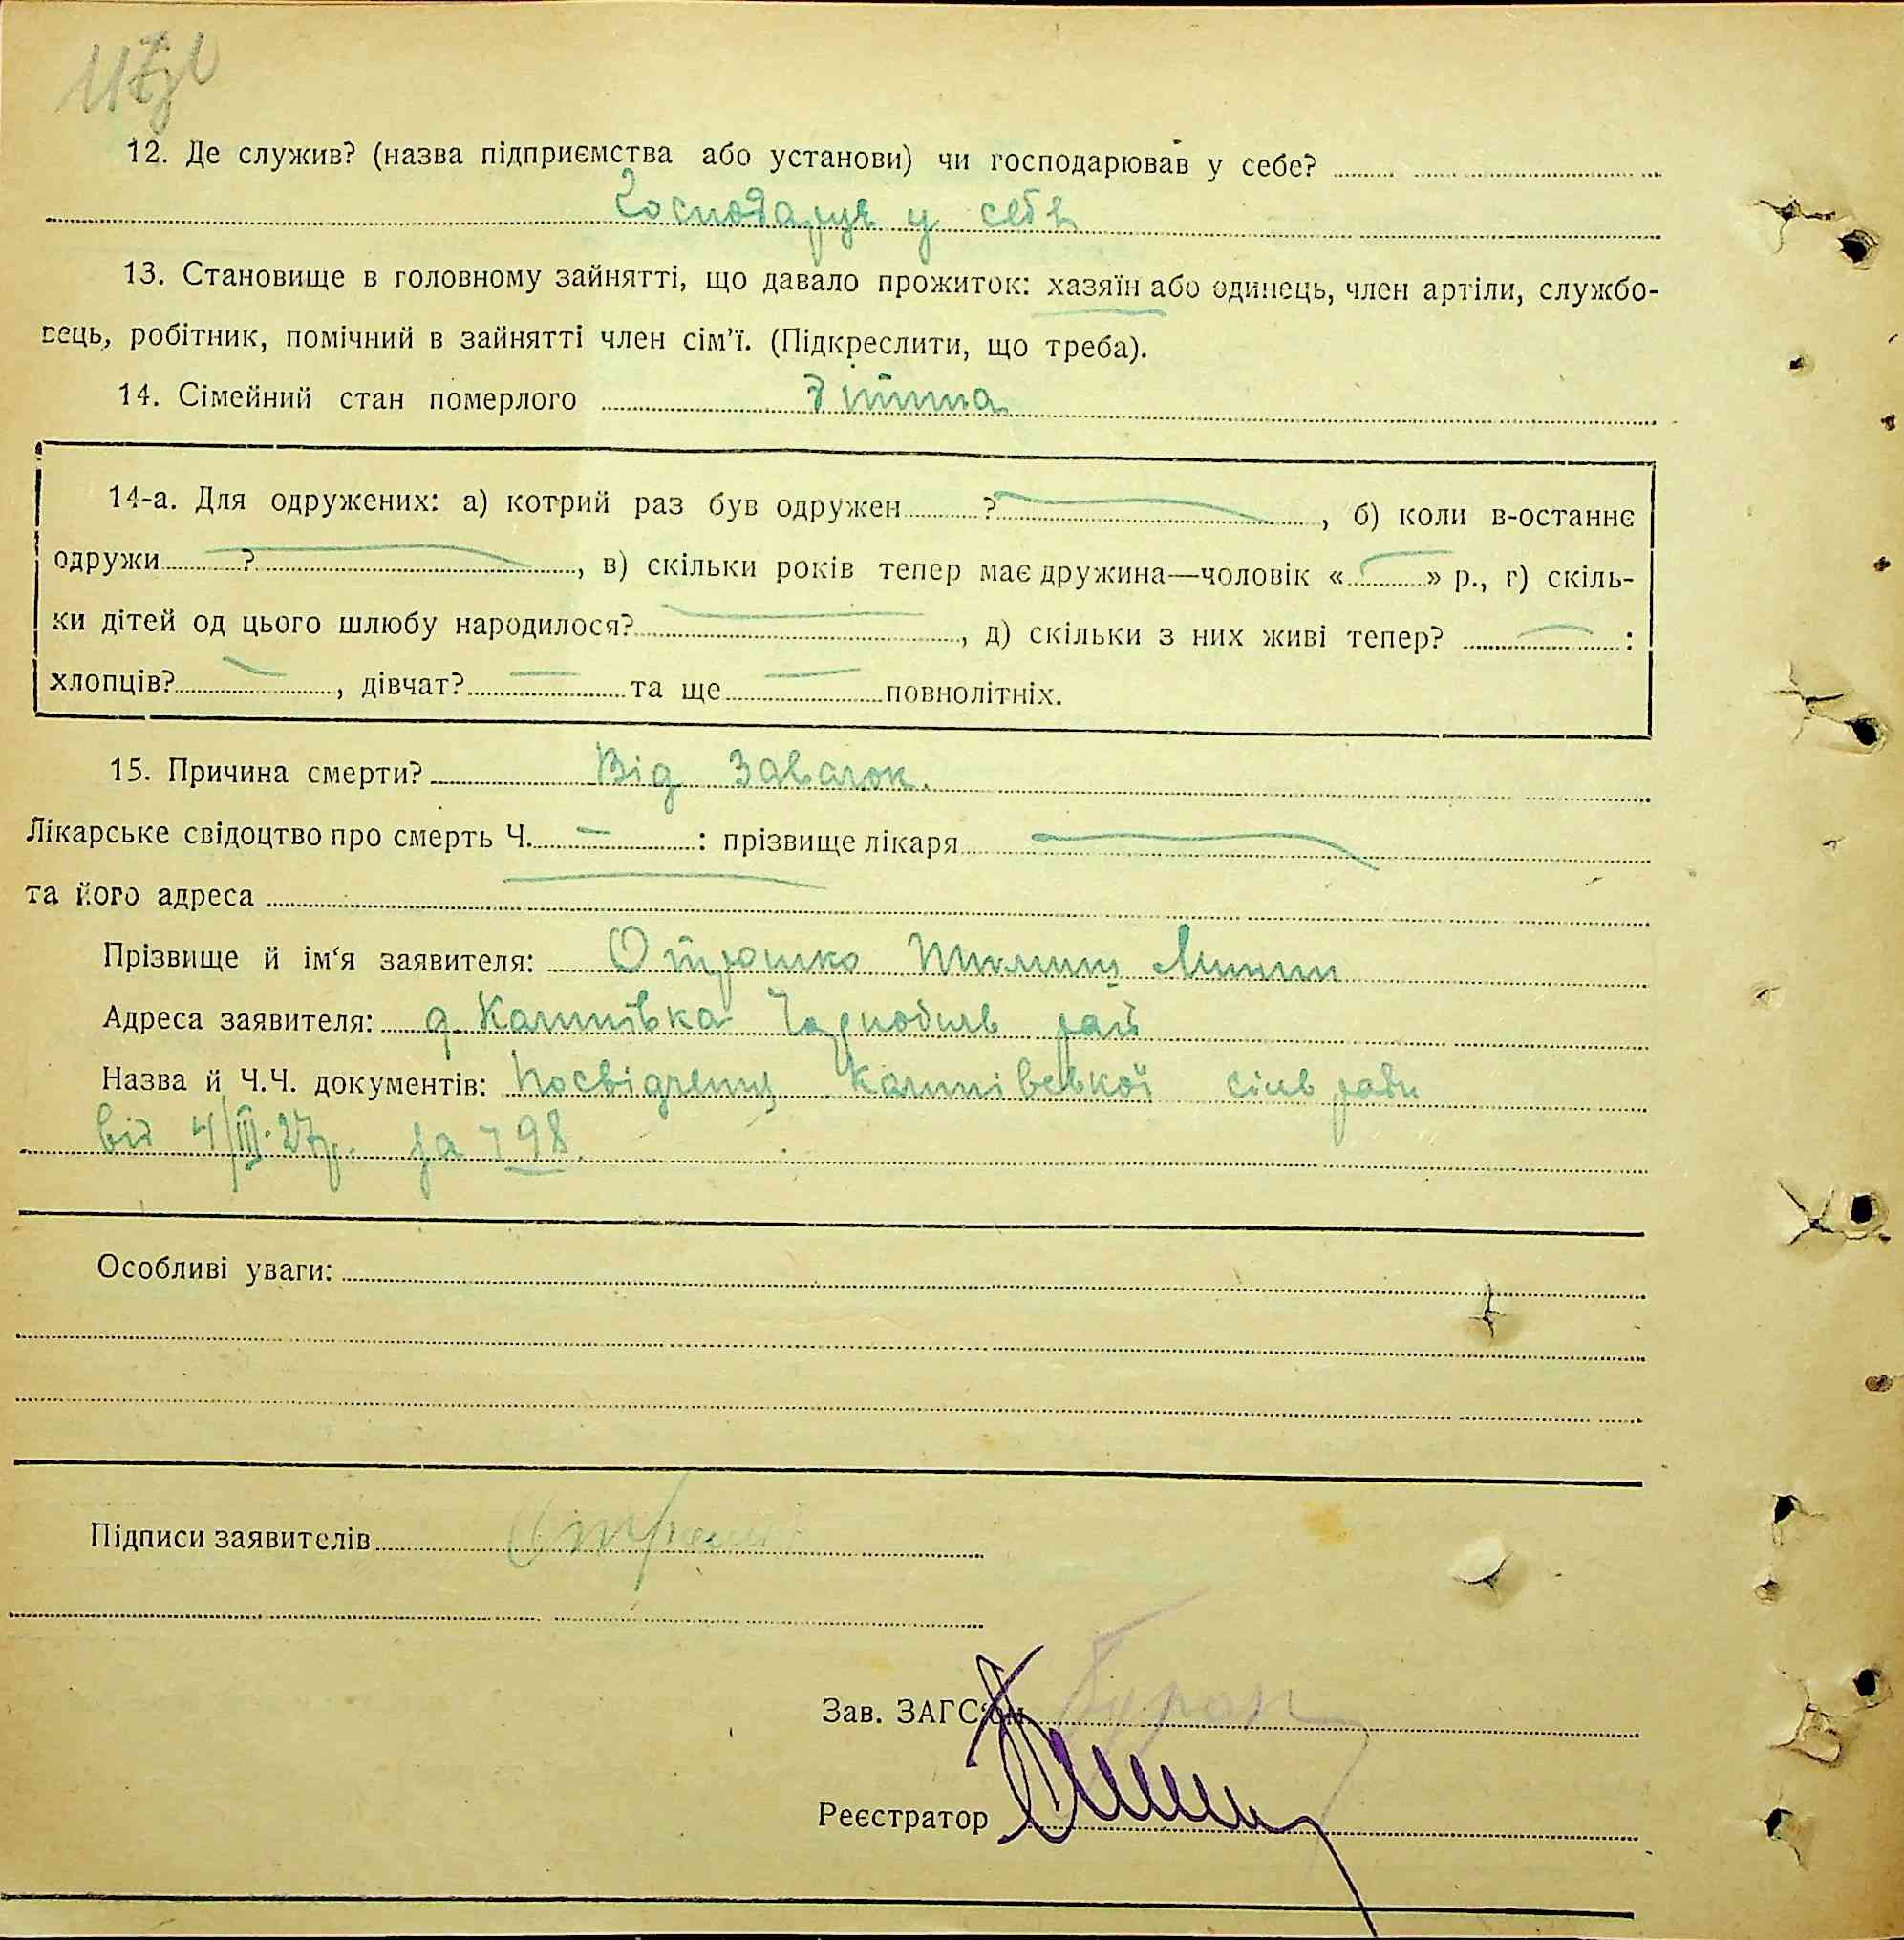 12. Де служив? (назва підприємства або установи) чи господарював у себе?
Господарув у себе
13. Становище в головному зайнятті, що давало прожиток: хазяїн або одинець, член артіли, службо-
вець, робітник, помічний в зайнятті член сім'ї. (Підкреслити, що треба).
14. Сімейний стан померлого
14-а. Для одружених: а) котрий раз був одружен ? , б) коли в-останнє
одружи ? , в) скільки років тепер має дружина—чоловік « » р., г) скіль-
ки дітей од цього шлюбу народилося? , д) скільки з них живі тепер? :
хлопців? , дівчат? та ще повнолітніх.
15. Причина смерти? Від Завалок.
Лікарське свідоцтво про смерть Ч. — : прізвище лікаря
та його адреса
Прізвище й ім‘я заявителя: Отрошко
Адреса заявителя: д. Чорнобиль рай
Назва й Ч.Ч. документів: Посвідчення сіль ради
від 4/III-27р. за 98.
Особливі уваги:
Підписи заявителів
Зав. ЗАГС‘ом
Реєстратор